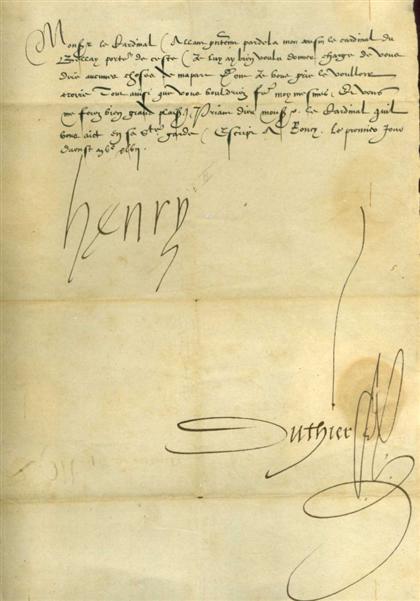 Monsr le Cardinal / Allant presentemt par dela mon cousin le cardinal du
Bellay porteur de ceste / Je luy ay bien voulu donner charge de vous
dire aucunes choses de ma part Dont Je vous prie le voulloir
croire Tout ainsi que vous vouldriez fere moy mesmes / Et vous
me ferez bien grand plaisir / Priant dieu monsr le Cardinal quil
vous aict en sa ste garde / Escript A le premier Jour
daoust
henry
Duthier